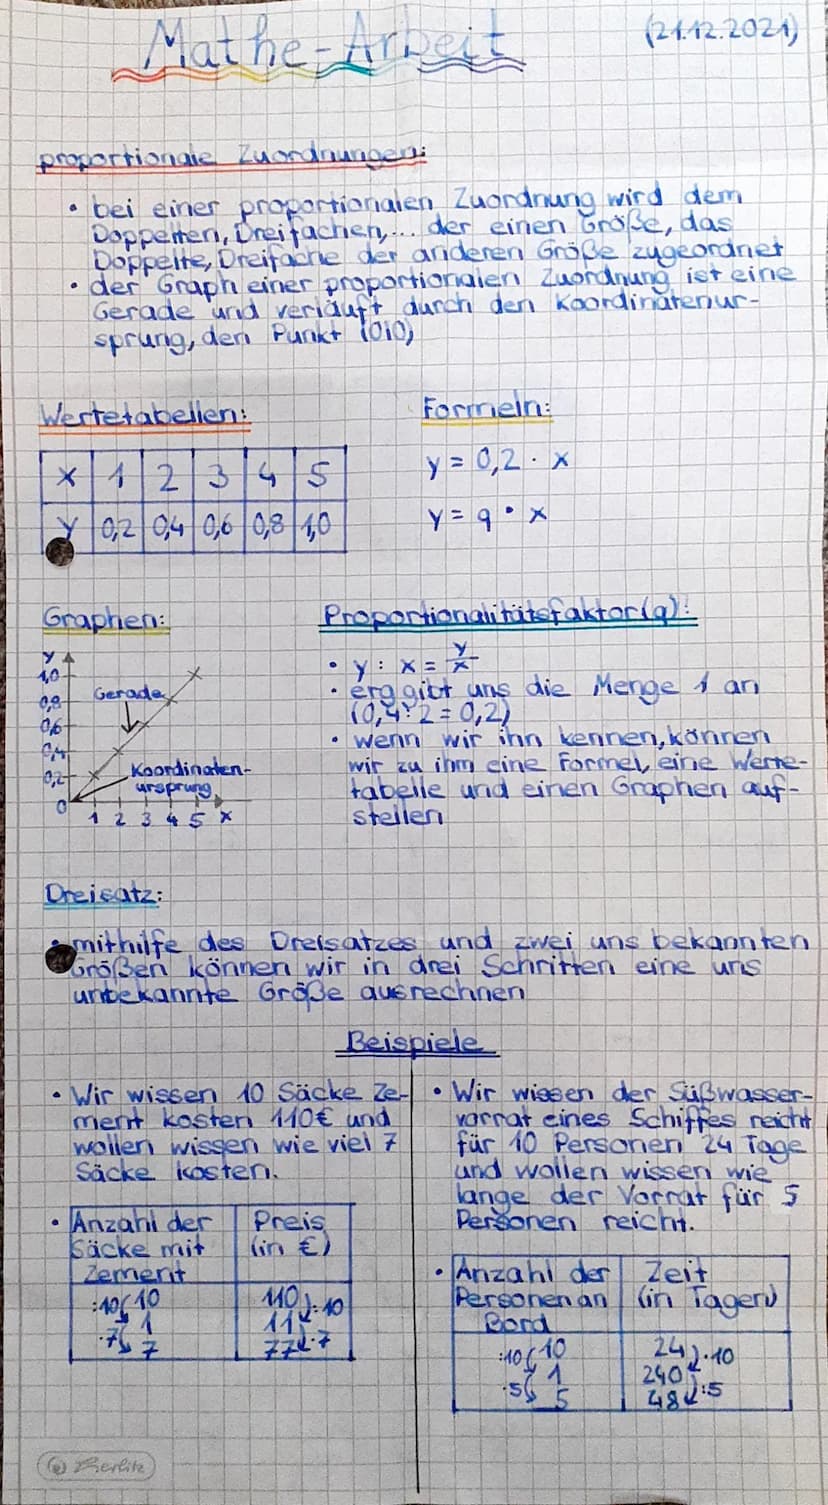 Mathe-Arbeit (21.12.2021)
proportionale Zuordnungen:
• bei einer proportionalen Zuordnung wird dem
Doppelten, Dreifachen,... der einen Größe, das
Doppelte, Dreifache der anderen Größe zugeordnet
• der Graph einer proportionalen Zuordnung ist eine
Gerade und verläuft durch den Koordinatenur-
sprung, den Punkt (0|0)
Wertetabellen:
x 1 2 3 4 5
y 0,2 0,4 0,6 0,8 1,0
Formeln:
y = 0,2 · x
y = q · x
Graphen:
y
1,0
0,8
0,6
0,4
0,2
0
Gerade
Koordinaten-
ursprung
1 2 3 4 5 x
Proportionalitätsfaktor(q):
• y : x = y/x
• erg gibt uns die Menge 1 an
(0,4:2=0,2)
• wenn wir ihn kennen, können
wir zu ihm eine Formel, eine Werte-
tabelle und einen Graphen auf-
stellen
Dreisatz:
• mithilfe des Dreisatzes und zwei uns bekannten
Größen können wir in drei Schritten eine uns
unbekannte Größe ausrechnen
Beispiele
• Wir wissen 10 Säcke Ze-
ment kosten 110€ und
wollen wissen wie viel 7
Säcke kosten.
• Anzahl der Preis
Säcke mit (in €)
Zement
:10 10 110 :10
·7 1 11 ·7
7 77
• Wir wissen der Süßwasser-
vorrat eines Schiffes reicht
für 10 Personen 24 Tage
und wollen wissen wie
lange der Vorrat für 5
Personen reicht.
• Anzahl der Zeit
Personen an (in Tagen)
Bord
:10 10 24 ·10
·5 1 240 :5
5 48
Berlitz